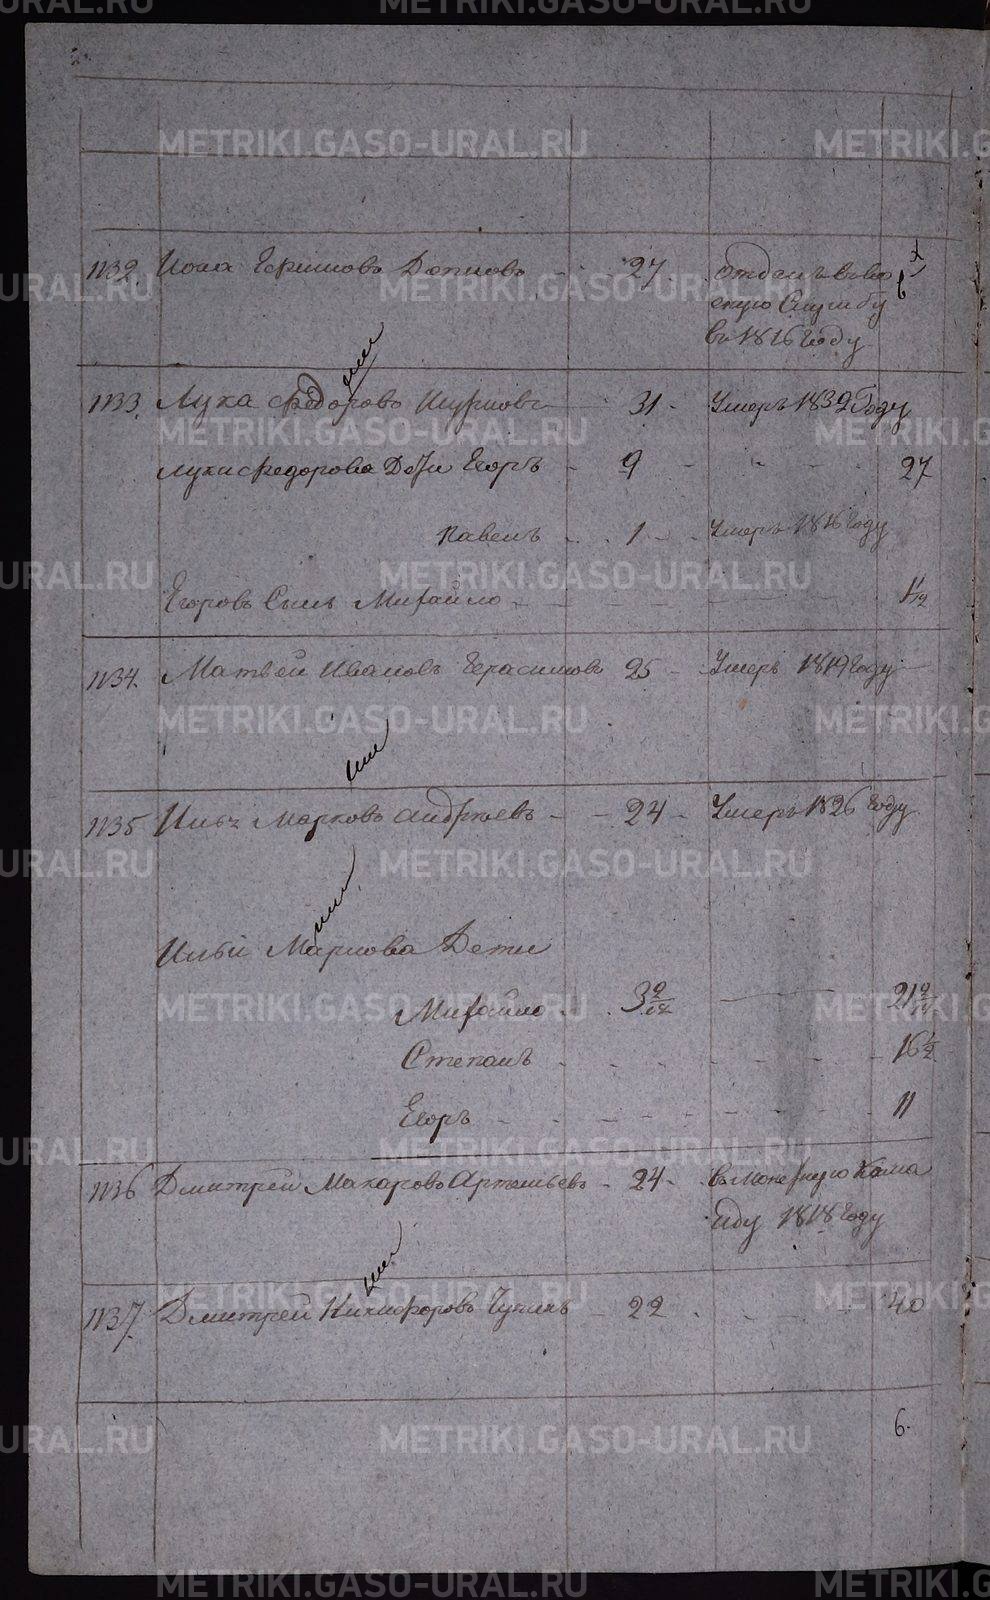 1132. Иона Ефимовъ 27. отданъ въ во
енную Службу
въ 1816 году
1133. Лука Федоровъ 31 - Умеръ 1832 Году
Луки Федорова Дети Егоръ - 9 - - - 27
Павелъ - - 1 - - Умеръ 1816 году
Егоровъ Сынъ Михайло - - - 1 1/2
1134. Матвей Ивановъ Герасимовъ 25 - Умеръ 1819 году
1135 Илья Марковъ Андреевъ - - 24 - Умеръ 1826 году
Ильи Маркова Дети
Михайло - 3 9/12 21 9/12
Степанъ - - - - - 16 1/2
Егоръ - - - - - 11
1136 Дмитрей Макаровъ Артемьевъ - 24 - 
1818 году
1137. Дмитрей Никифоровъ Чупинъ - 22 - - - 40
6.
METRIKI.GASO-URAL.RU